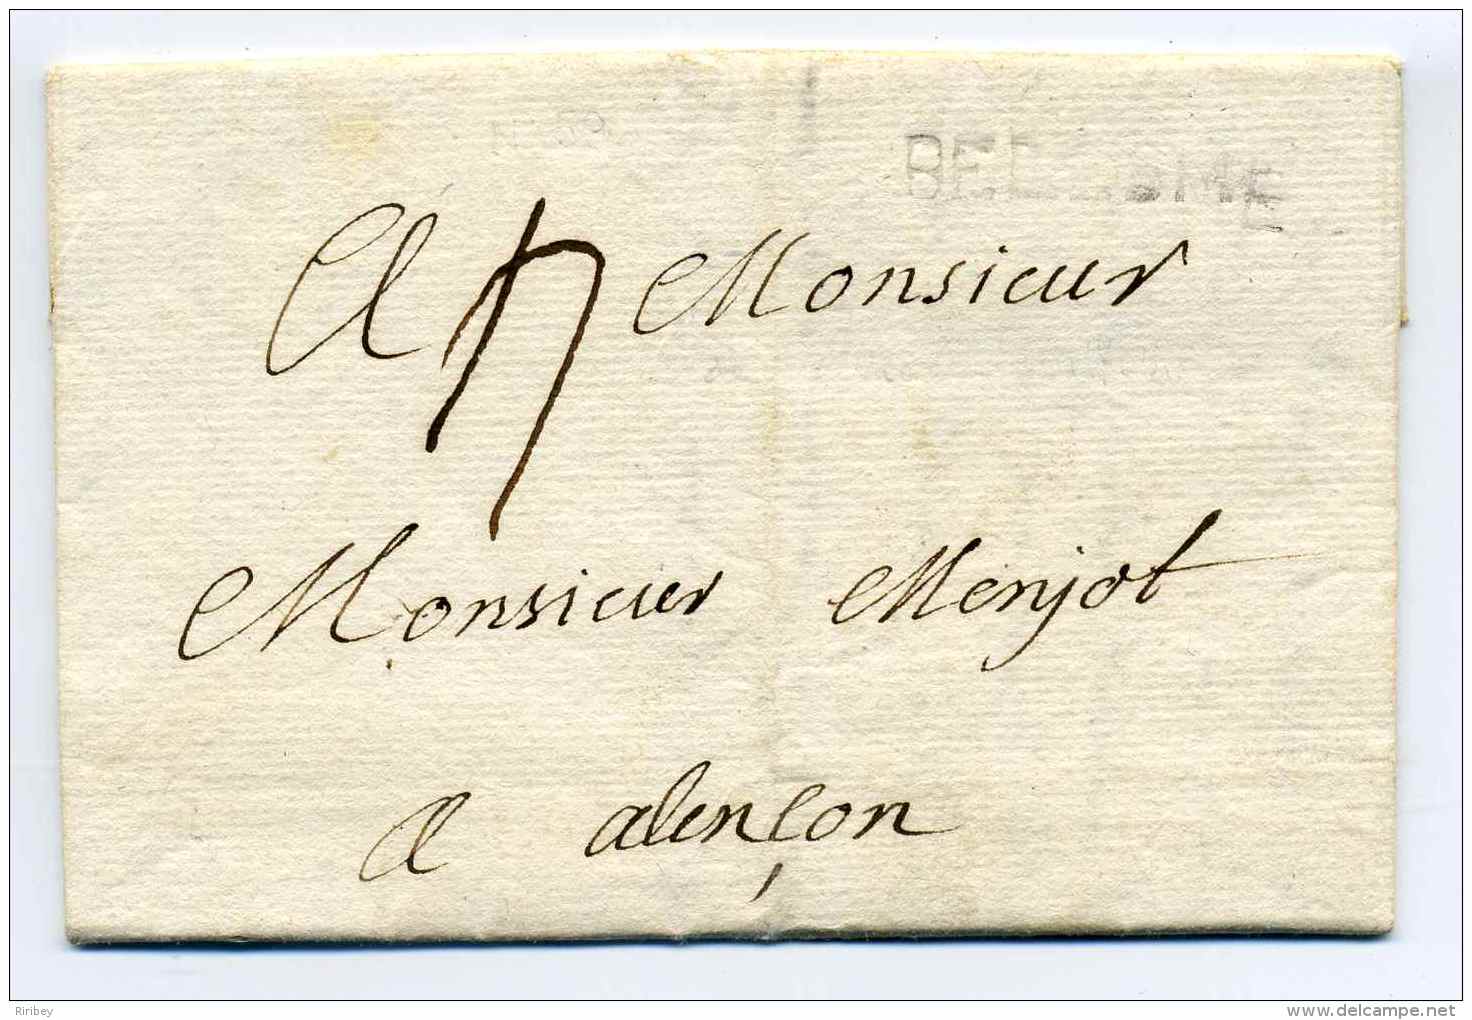 BELLESME
A Monsieur
Monsieur Menjot
a alençon
Riribey
delcampe.net